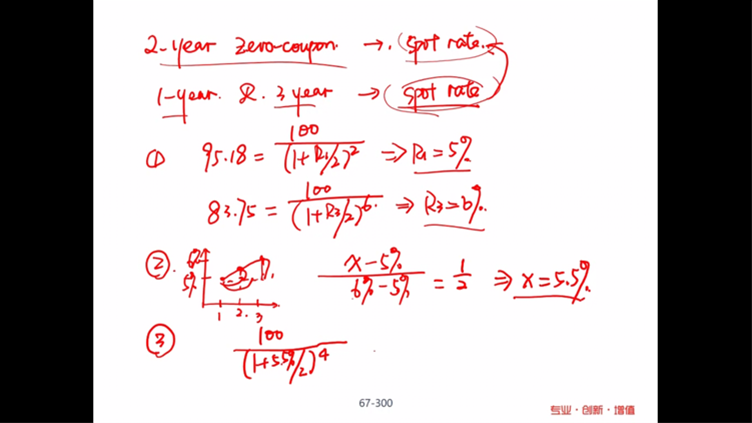 2-year zero-coupon → spot rate
1-year & 3 year → spot rate
① 95.18 = 100/(1+R1/2)^2 ⇒ R1 = 5%
83.75 = 100/(1+R3/2)^6 ⇒ R3 = 6%
② 6% 5% 1 2 3 (x-5%)/(6%-5%) = 1/2 ⇒ x = 5.5%
③ 100/(1+5.5%/2)^4
67-300
专业·创新·增值